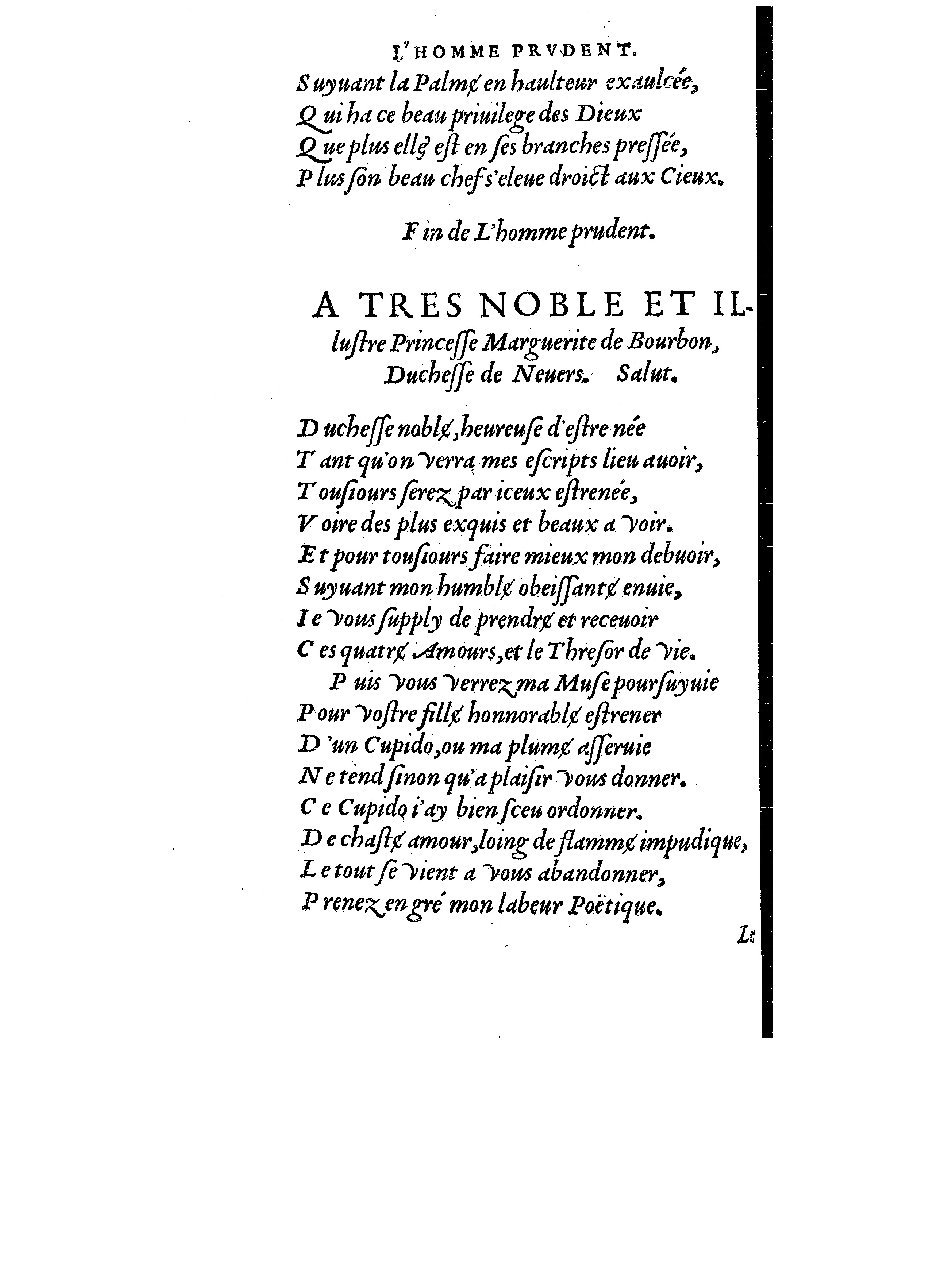 L'HOMME PRVDENT.
Suyuant la Palmɇ en haulteur exaulcée,
Qui ha ce beau priuilege des Dieux
Que plus ellɇ eſt en ſes branches preſſée,
Plus ſon beau chef s'eleue droict aux Cieux.
Fin de L'homme prudent.
A TRES NOBLE ET IL-
luſtre Princeſſe Marguerite de Bourbon,
Ducheſſe de Neuers. Salut.
Ducheſſe noblɇ, heureuſe d'eſtre née
Tant qu'on verra mes eſcripts lieu auoir,
Touſiours ſerez par iceux eſtrenée,
Voire des plus exquis et beaux a voir.
Et pour touſiours faire mieux mon debuoir,
Suyuant mon humblɇ obeiſſantɇ enuie,
Ie vous ſupply de prendrɇ et receuoir
Ces quatrɇ Amours, et le Threſor de vie.
Puis vous verrez ma Muſe pourſuyuie
Pour voſtre fillɇ honnorablɇ eſtrener
D'un Cupido, ou ma plumɇ aſſeruie
Ne tend ſinon qu'a plaiſir vous donner.
Ce Cupido i'ay bien ſceu ordonner.
De chaſtɇ amour, loing de flammɇ impudique,
Le tout ſe vient a vous abandonner,
Prenez en gré mon labeur Poëtique.
Le